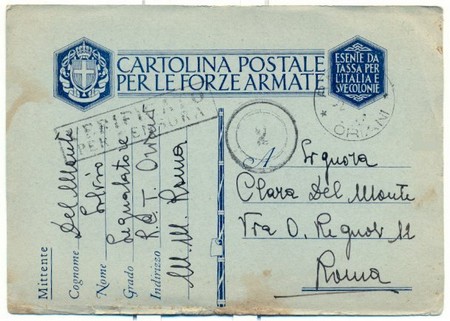 CARTOLINA POSTALE
PER LE FORZE ARMATE
ESENTE DA
TASSA PER
L'ITALIA E
COLONIE
VERIFICATO
PER CENSURA
ORIANI
Mittente
Cognome Del Monte
Nome Silvio
Grado Segnalatore
Indirizzo R.C.T. Oriani
M.M. Roma
A Signora
Clara Del Monte
Via O. Regnoli 12
Roma